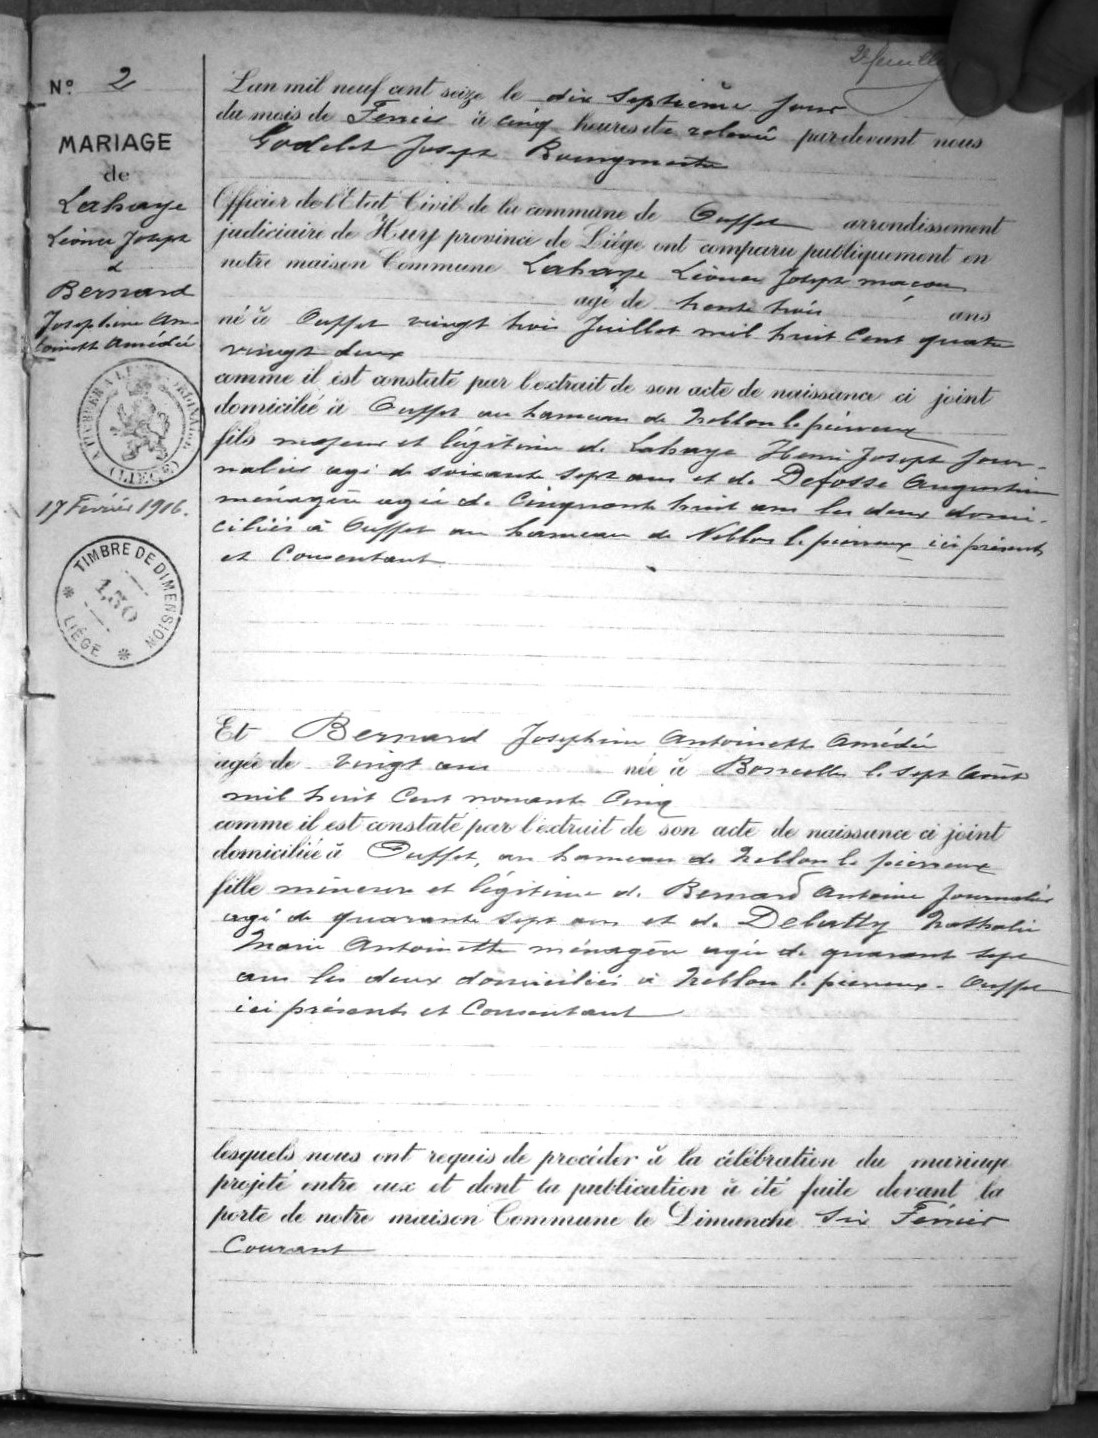 2e feuillet
Nº 2
MARIAGE
de
Lahaye
Léonce Joseph
&
Bernard
Joséphine An-
toinette Amédée
LIÈGE
17 Février 1916.
TIMBRE DE DIMENSION
1,30
LIÈGE
L'an mil neuf cent seize le dix septième jour
du mois de Février à cinq heures de relevée pardevant nous
Godelet Joseph Bourgmestre
Officier de l'Etat Civil de la commune de Ouffet arrondissement
judiciaire de Huy province de Liége ont comparu publiquement en
notre maison Commune Lahaye Léonce Joseph maçon
agé de trente trois ans
né à Ouffet vingt trois Juillet mil huit cent quatre
vingt deux
comme il est constaté par l'extrait de son acte de naissance ci joint
domicilié à Ouffet au hameau de Neblon le pierreux
fils majeur et légitime de Lahaye Henri Joseph Jour-
nalier agé de soixante sept ans et de Defosse Augustine
ménagère agée de cinquante huit ans les deux domi-
ciliés à Ouffet au hameau de Neblon le pierreux ici présents
et Consentant
Et Bernard Joséphine Antoinette Amédée
agée de vingt ans née à Borselle le sept Août
mil huit Cent nonante Cinq
comme il est constaté par l'extrait de son acte de naissance ci joint
domiciliée à Ouffet, au hameau de Neblon le pierreux
fille mineure et légitime de Bernard Antoine Journalier
agé de quarante sept ans et de Debatty Nathalie
Marie Antoinette ménagère agée de quarante sept
ans les deux domiciliés à Neblon le pierreux - Ouffet
ici présents et Consentant
lesquels nous ont requis de procéder à la célébration du mariage
projeté entre eux et dont la publication a été faite devant la
porte de notre maison Commune le Dimanche Six Février
Courant